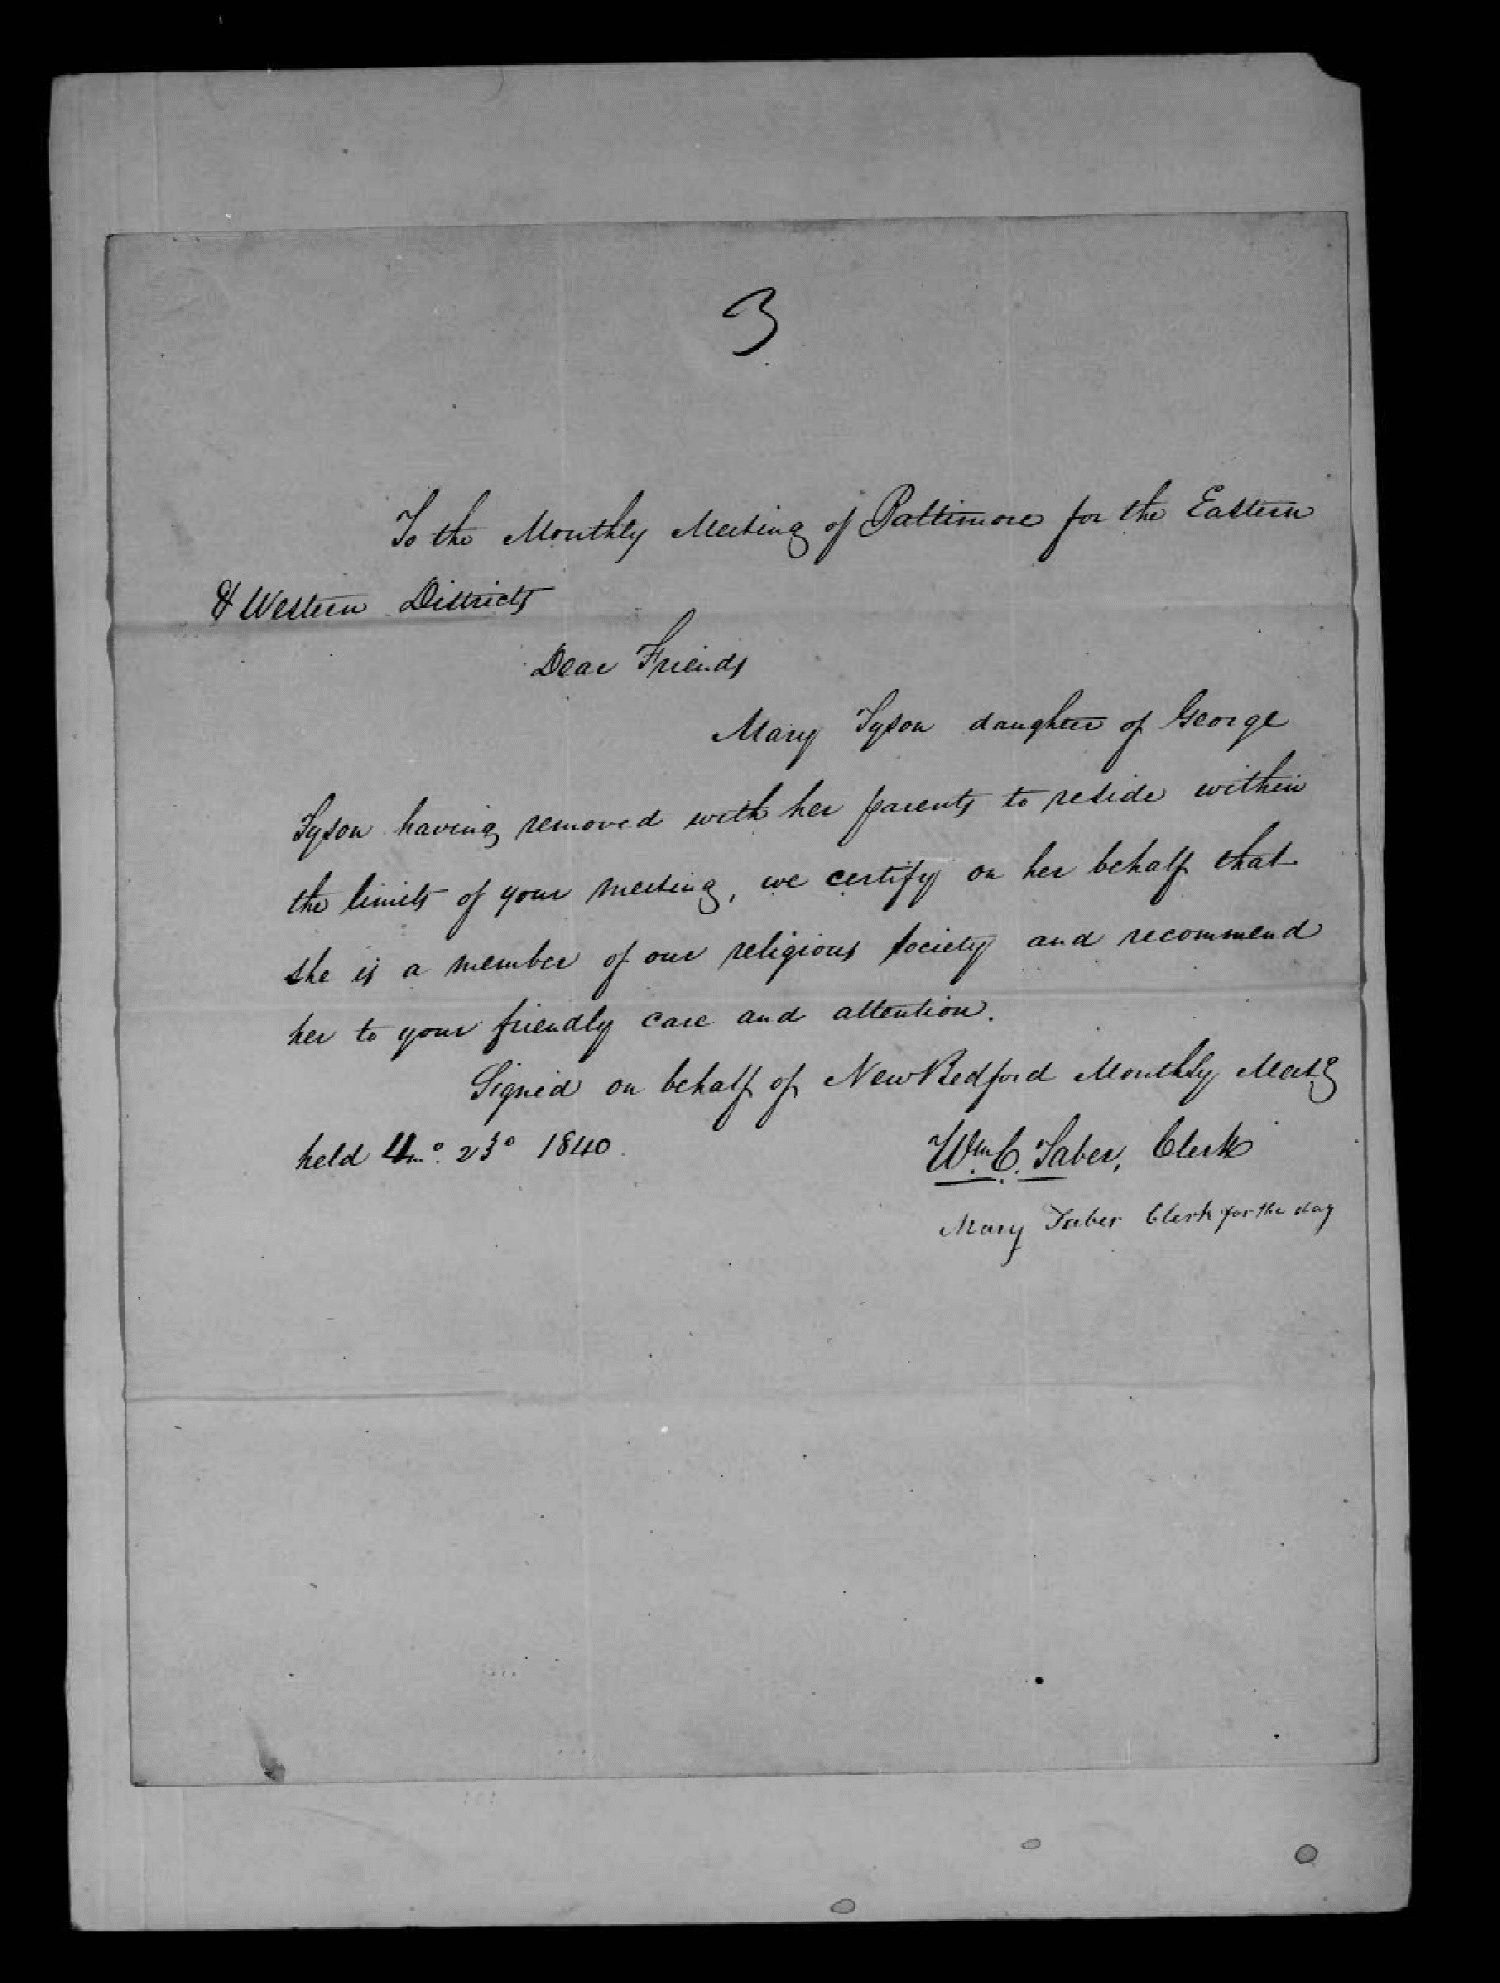 3
To the Monthly Meeting of Baltimore for the Eastern
& Western Districts
Dear Friends
Mary Tyson daughter of George
Tyson having removed with her parents to reside within
the limits of your meeting, we certify on her behalf that
she is a member of our religious society and recommend
her to your friendly care and attention.
Signed on behalf of New Bedford Monthly Meetg
held 4mo. 23d 1840.
Wm. C. Taber, Clerk
Mary Taber Clerk for the day